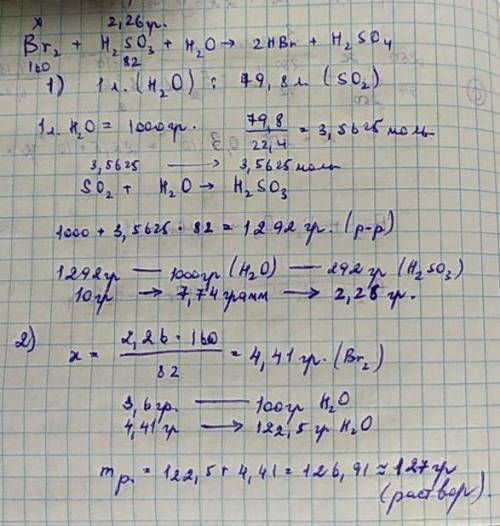 x 2,26гр.
Br₂ + H₂SO₃ + H₂O → 2HBr + H₂SO₄
160 82
1) 1л.(H₂O) : 79,8л (SO₂)
1л. H₂O = 1000гр. 79,8/22,4 = 3,5625 моль
3,5625 → 3,5625 моль
SO₂ + H₂O → H₂SO₃
1000 + 3,5625 · 82 = 1292 гр. (р-р)
1292гр — 1000гр (H₂O) — 292 гр (H₂SO₃)
10гр → 7,74 грамм → 2,26 гр.
2) x = 2,26 · 160 / 82 = 4,41 гр. (Br₂)
3,6гр. — 100гр H₂O
4,41 гр → 122,5 гр H₂O
m р. = 122,5 + 4,41 = 126,91 ≈ 127 гр
(раствор).